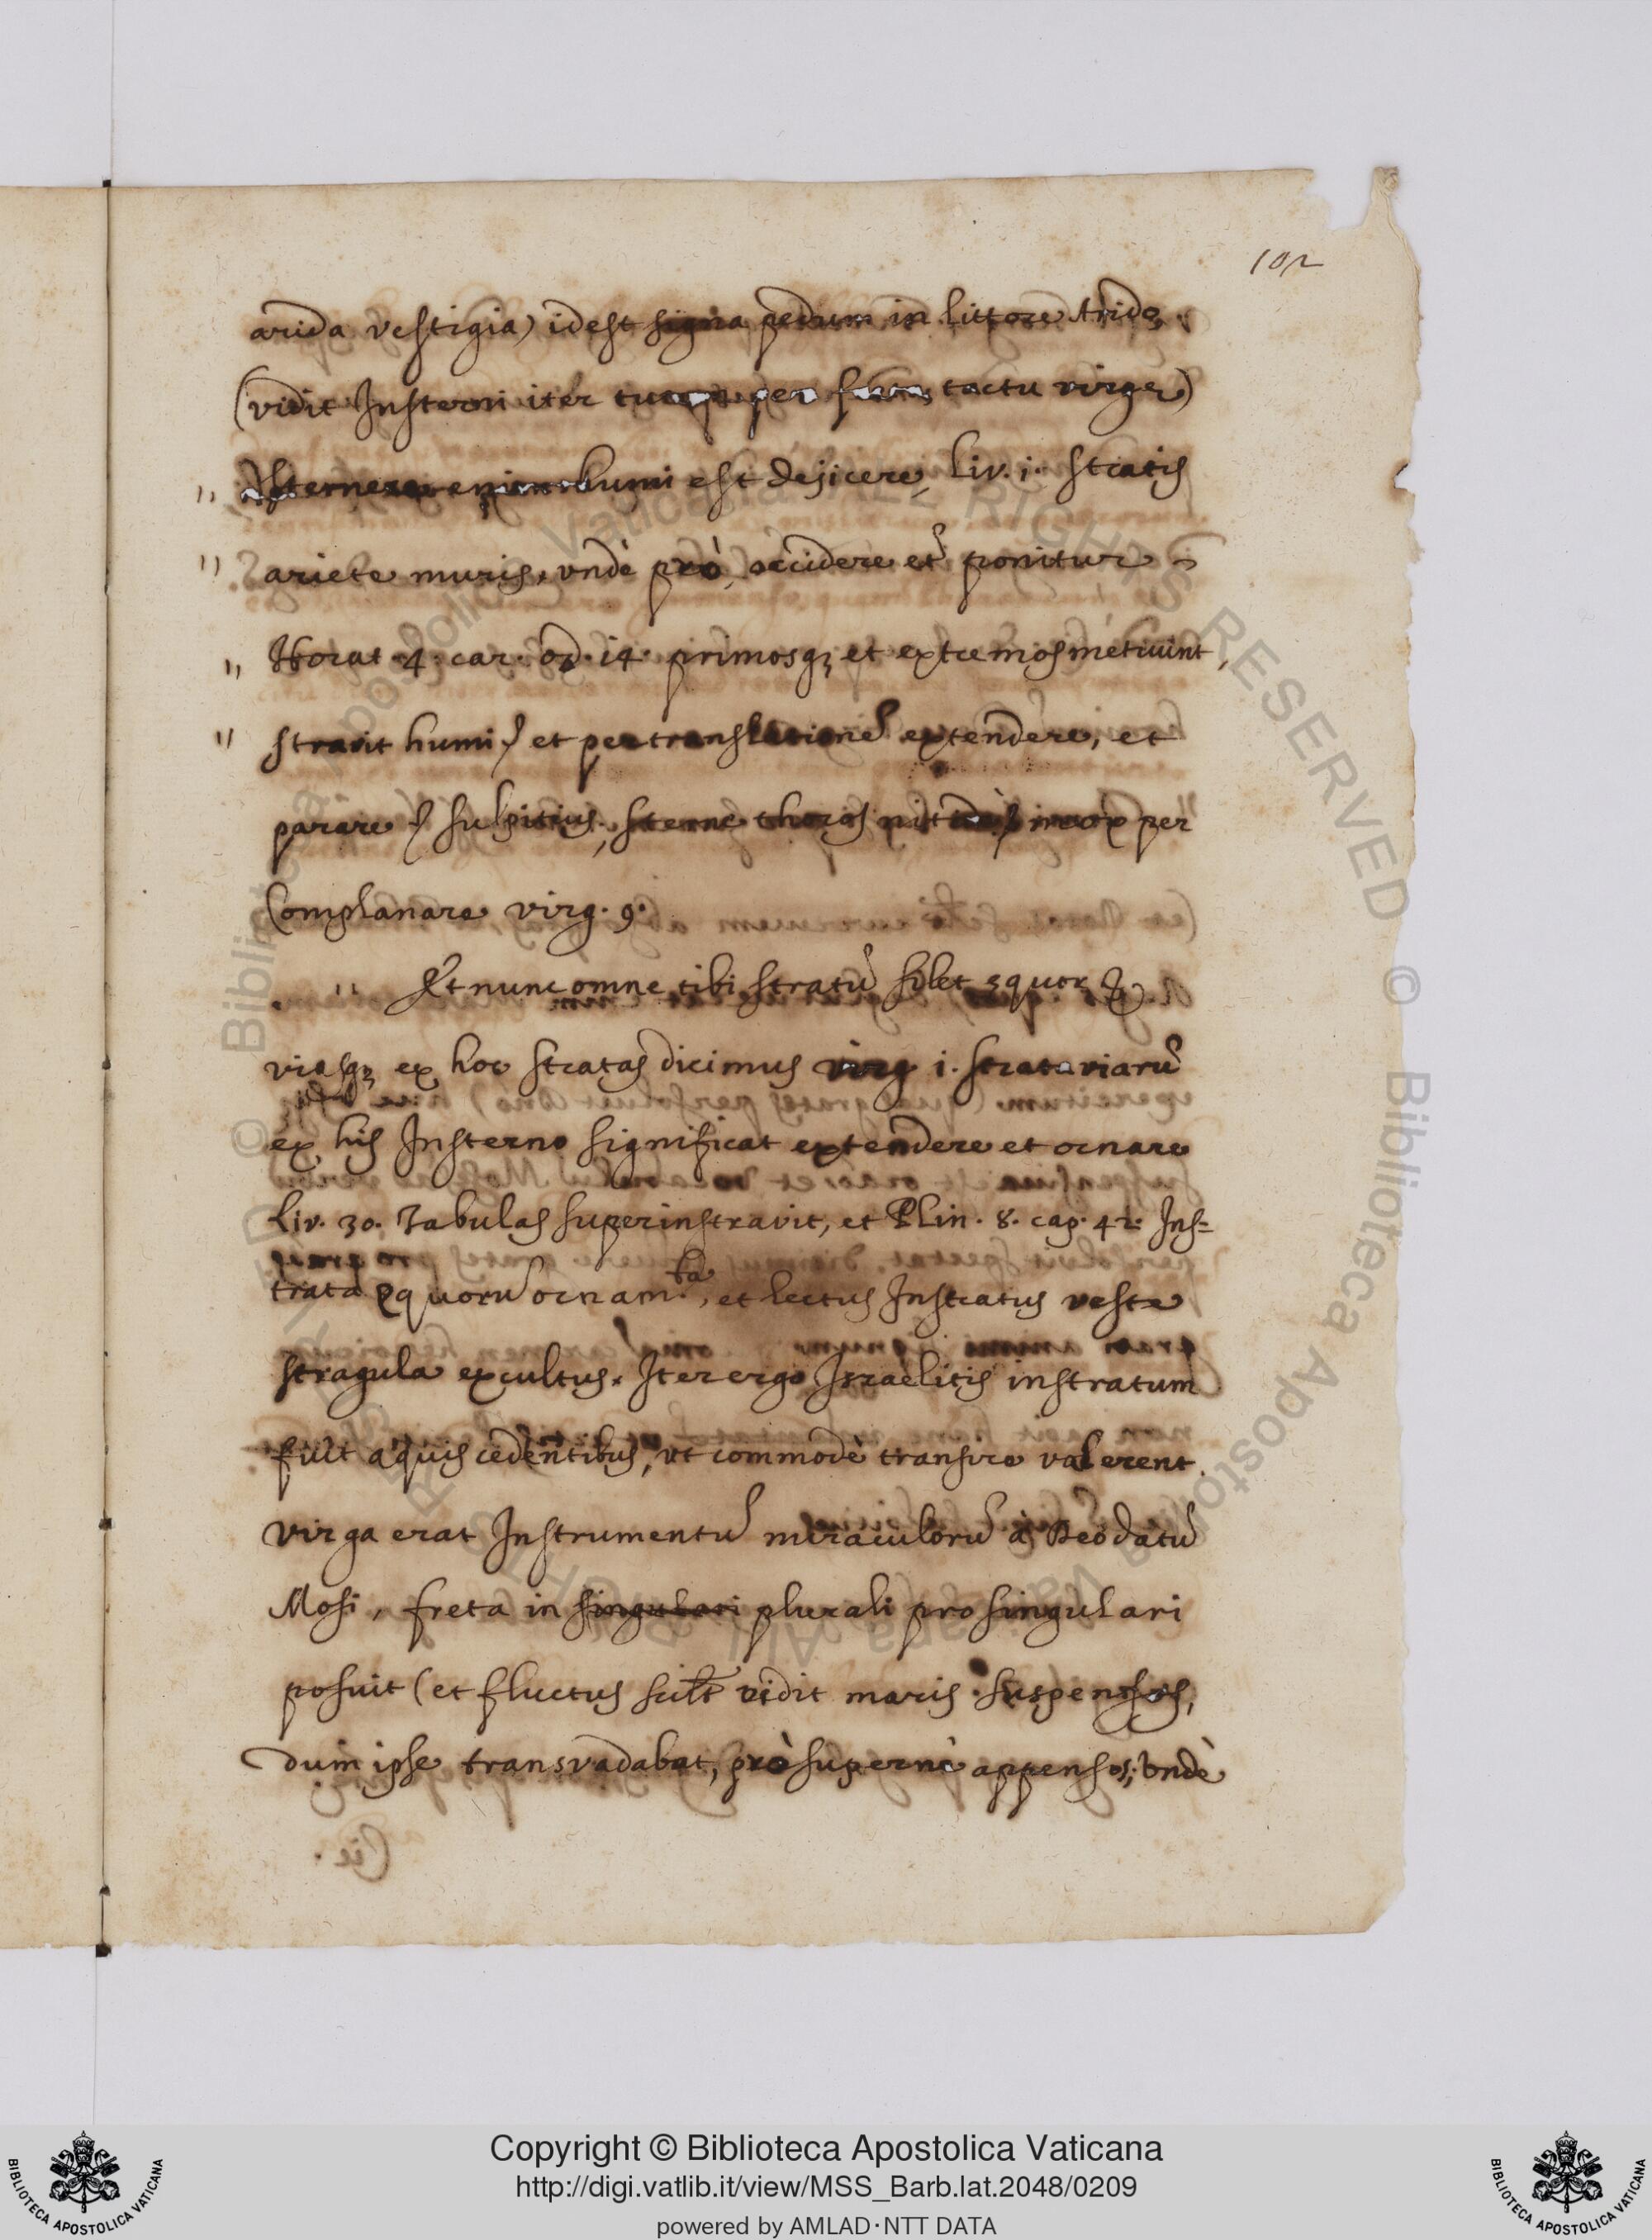 102
arida vestigia) idest signa pedum in littore Arido.
(vidit Insterni iter tuum per freta, tactu virgæ)
" sternere enim humi est dejicere, Liv. i. stratis
" ariete muris, vndè prò occidere et ponitur
" Horat. 4. car. od. 14. primosq; et extremos metiuint,
" stravit humi) et per translationẽ extendere, et
parare) sulpitius, sterne thoros per
Complanare virg. 9.
" Et nunc omne tibi stratũ silet ęquor &
viasq; ex hoc stratas dicimus virg i. strata viarũ
ex his Insterno significat extendere et ornare
Liv. 30. Tabulas superinstravit, et Plin. 8. cap. 42. Ins=
trata equorũ ornamta, et lectus Instratus veste
stragula excultus. Iter ergo Israèlitis instratum
fuit aquis cedentibus, vt commodè transire valerent.
virga erat Instrumentũ miraculorũ à Deo datũ
Mosi, freta in singulari plurali pro singulari
posuit (et fluctus scilt vidit maris suspensos,
dum ipse transvadabat, prò supernè appensos; vndè
Copyright © Biblioteca Apostolica Vaticana
http://digi.vatlib.it/view/MSS_Barb.lat.2048/0209
powered by AMLAD·NTT DATA
BIBLIOTECA APOSTOLICA VATICANA
BIBLIOTECA APOSTOLICA VATICANA